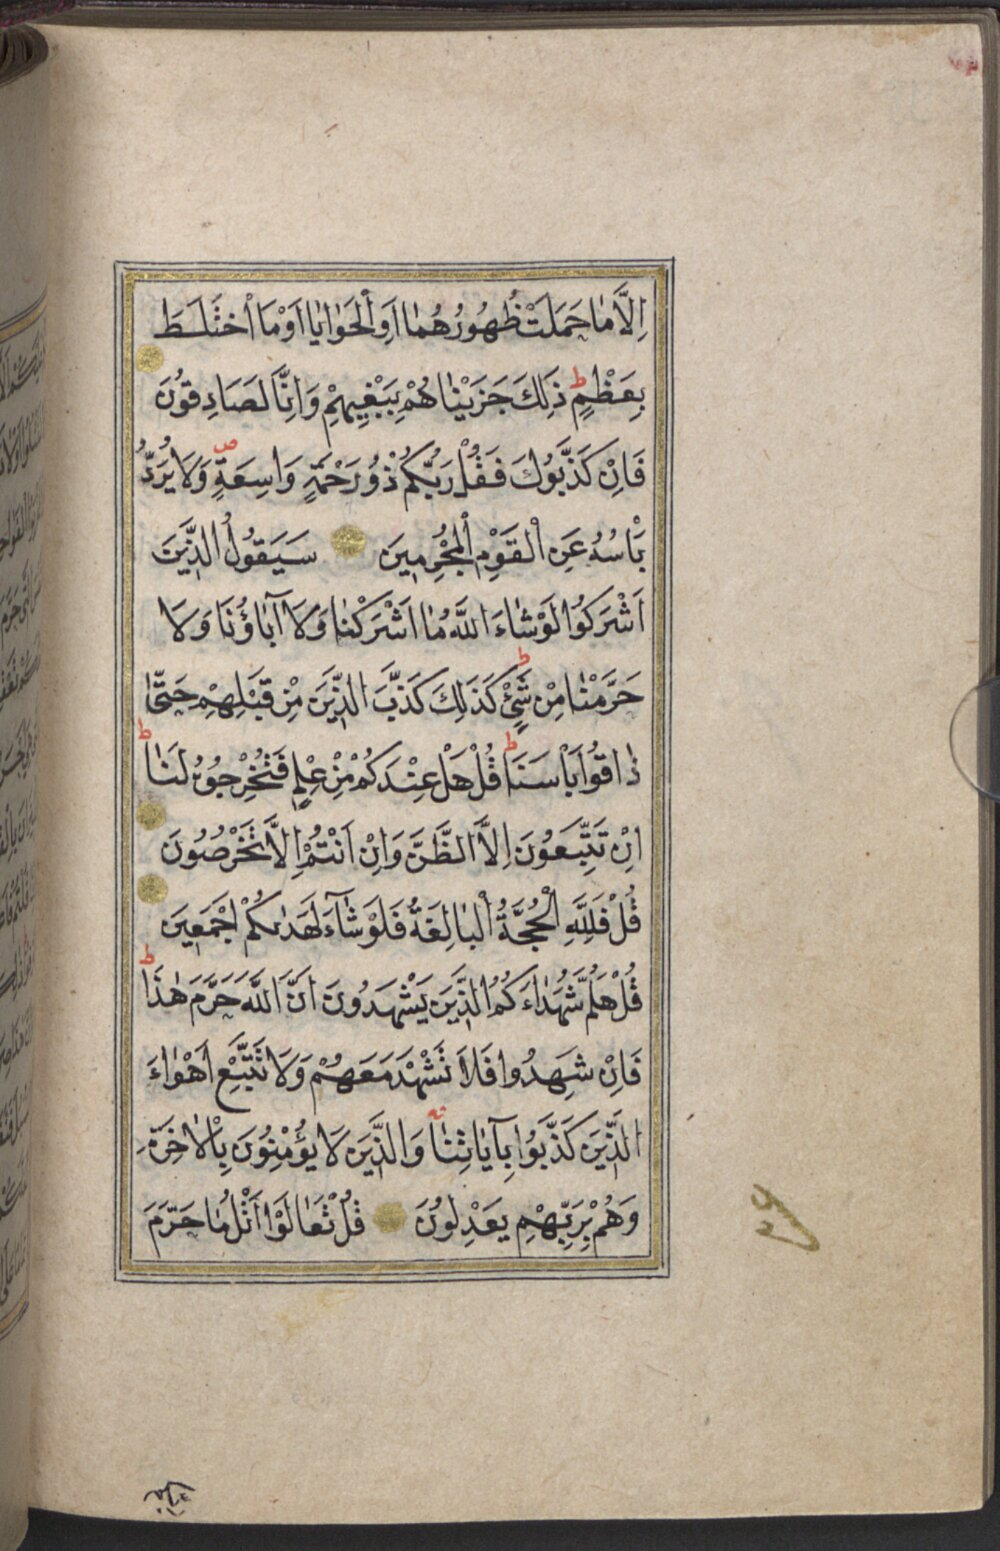 اِلَّا مَا حَمَلَتْ ظُهُورُهُمَا اَوِ الْحَوَايَا اَوْ مَا اخْتَلَطَ
بِعَظْمٍ ط ذَلِكَ جَزَيْنَاهُمْ بِبَغْيِهِمْ وَاِنَّا لَصَادِقُونَ
فَاِنْ كَذَّبُوكَ فَقُلْ رَبُّكُمْ ذُو رَحْمَةٍ وَاسِعَةٍ ص وَلَا يُرَدُّ
بَاْسُهُ عَنِ الْقَوْمِ الْمُجْرِمِينَ سَيَقُولُ الَّذِينَ
اَشْرَكُوا لَوْ شَاءَ اللَّهُ مَا اَشْرَكْنَا وَلَا آبَاؤُنَا وَلَا
حَرَّمْنَا مِنْ شَيْءٍ ط كَذَلِكَ كَذَّبَ الَّذِينَ مِنْ قَبْلِهِمْ حَتَّى
ذَاقُوا بَاْسَنَا ط قُلْ هَلْ عِنْدَكُمْ مِنْ عِلْمٍ فَتُخْرِجُوهُ لَنَا ط
اِنْ تَتَّبِعُونَ اِلَّا الظَّنَّ وَاِنْ اَنْتُمْ اِلَّا تَخْرُصُونَ
قُلْ فَلِلَّهِ الْحُجَّةُ الْبَالِغَةُ فَلَوْ شَآءَ لَهَدٰيكُمْ اَجْمَعِينَ
قُلْ هَلُمَّ شُهَدَاءَكُمُ الَّذِينَ يَشْهَدُونَ اَنَّ اللَّهَ حَرَّمَ هٰذَا ط
فَاِنْ شَهِدُوا فَلَا تَشْهَدْ مَعَهُمْ وَلَا تَتَّبِعْ اَهْوَاءَ
الَّذِينَ كَذَّبُوا بِآيَاتِنَا وَالَّذِينَ لَا يُؤْمِنُونَ بِالْاٰخِرَةِ
وَهُمْ بِرَبِّهِمْ يَعْدِلُونَ قُلْ تَعَالَوْا اَتْلُ مَا حَرَّمَ